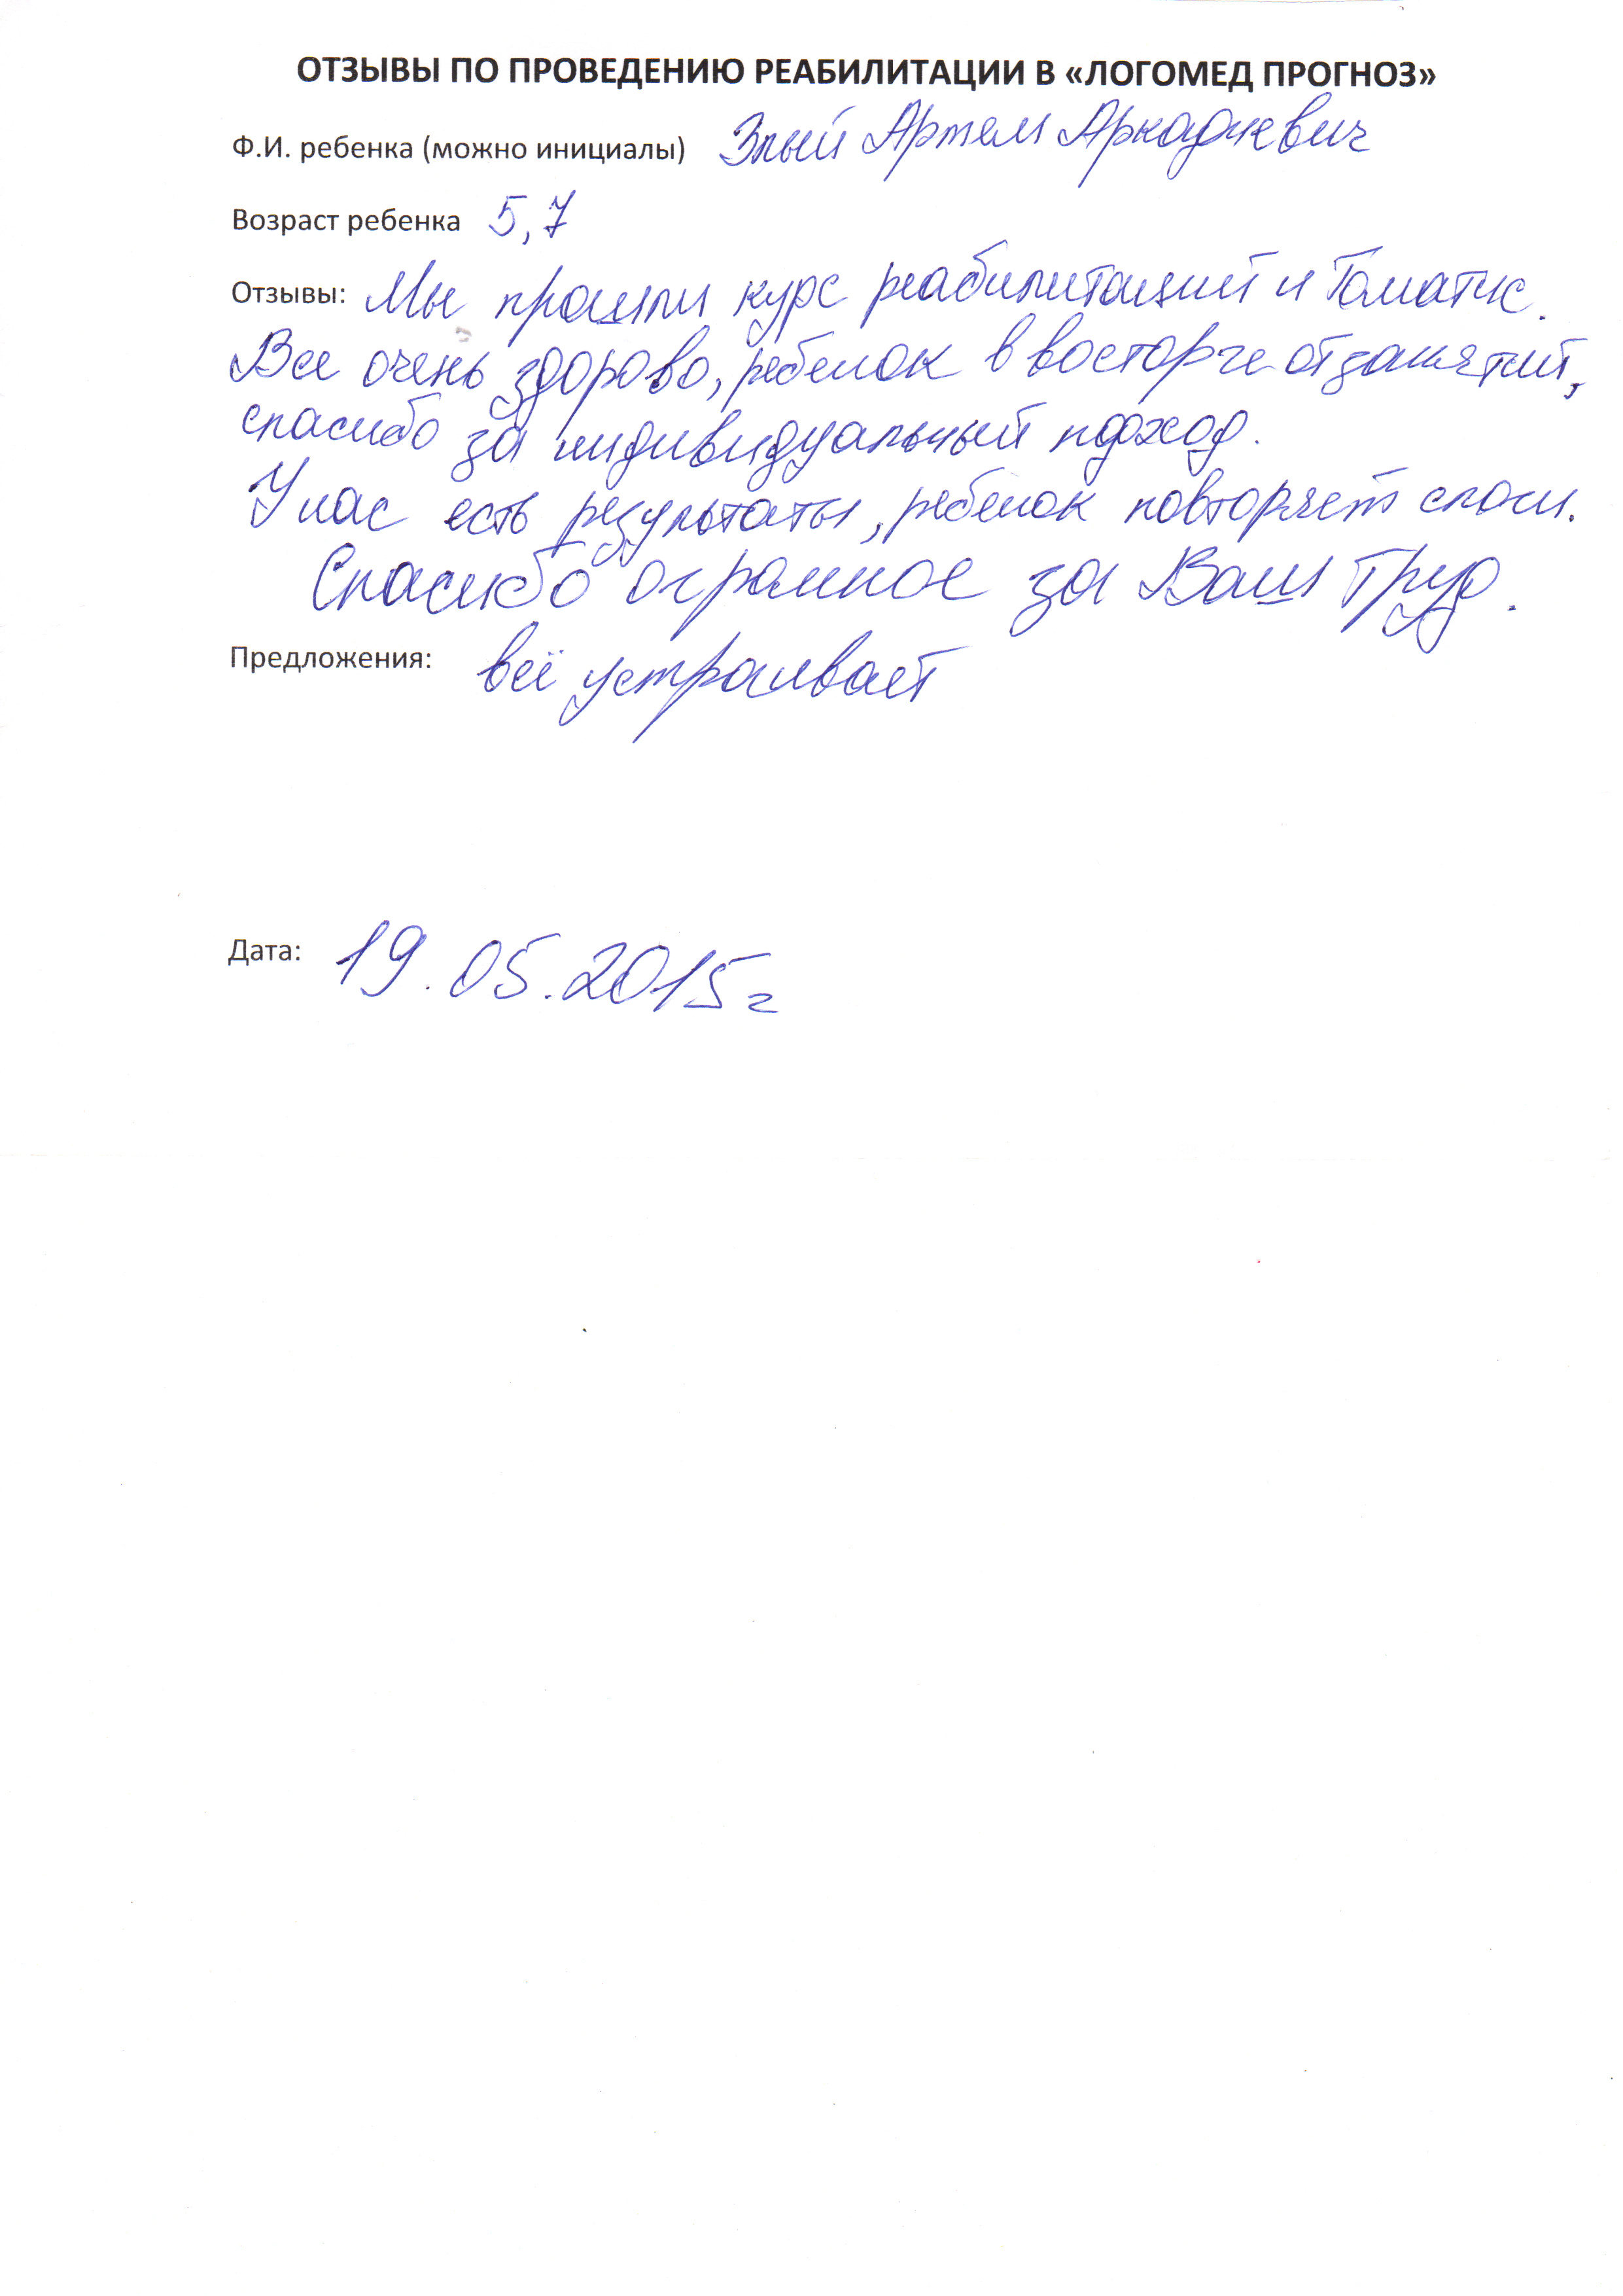 ОТЗЫВЫ ПО ПРОВЕДЕНИЮ РЕАБИЛИТАЦИИ В «ЛОГОМЕД ПРОГНОЗ»
Ф.И. ребенка (можно инициалы) Злый Артем Аркадиевич
Возраст ребенка 5,7
Отзывы: Мы прошли курс реабилитаций и Томатис.
Все очень здорово, ребенок в восторге от занятий,
спасибо за индивидуальный подход.
У нас есть результаты, ребенок повторяет слоги.
Спасибо огромное за Ваш труд.
Предложения: всё устраивает
Дата: 19.05.2015г